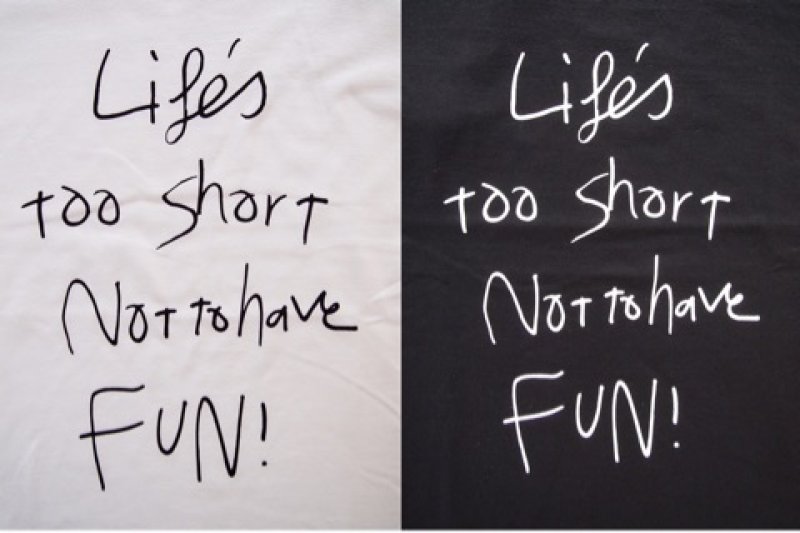 Life's
too short
Not to have
FUN!
Life's
too short
Not to have
FUN!